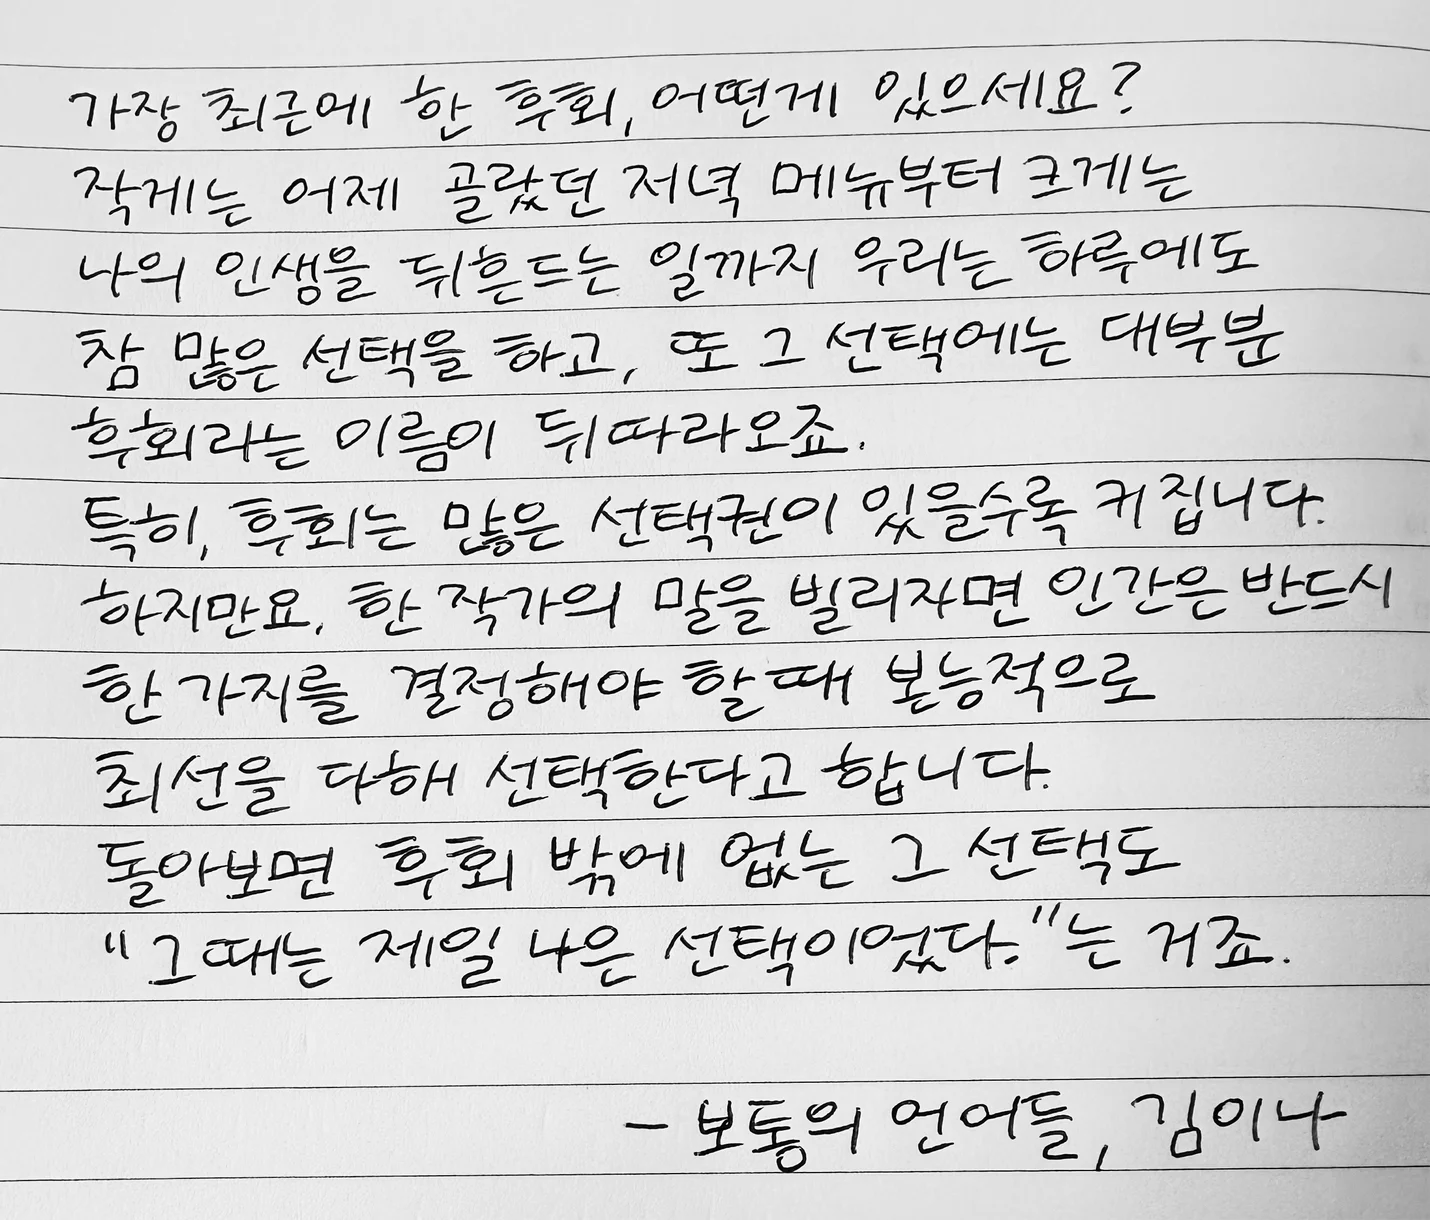 가장 최근에 한 후회, 어떤게 있으세요?
작게는 어제 골랐던 저녁 메뉴부터 크게는
나의 인생을 뒤흔드는 일까지 우리는 하루에도
참 많은 선택을 하고, 또 그 선택에는 대부분
후회라는 이름이 뒤따라오죠.
특히, 후회는 많은 선택권이 있을수록 커집니다.
하지만요, 한 작가의 말을 빌리자면 인간은 반드시
한 가지를 결정해야 할 때 본능적으로
최선을 다해 선택한다고 합니다.
돌아보면 후회 밖에 없는 그 선택도
"그때는 제일 나은 선택이었다."는 거죠.
- 보통의 언어들, 김이나